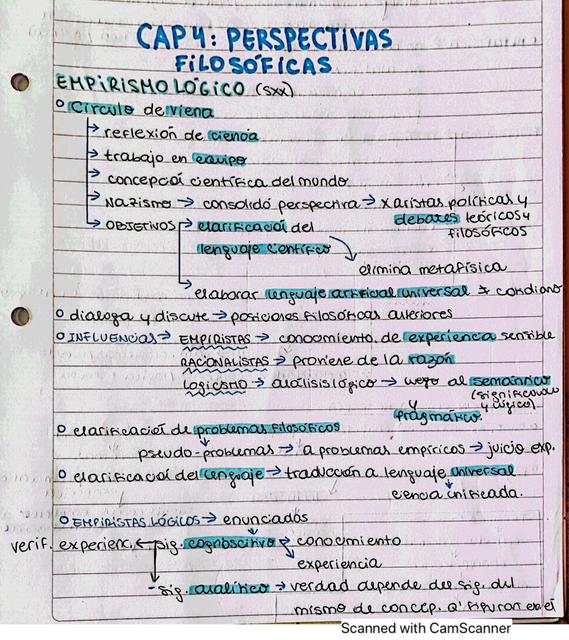 CAP 4: PERSPECTIVAS
FILOSÓFICAS
EMPIRISMO LÓGICO (SXX)
Círculo de Viena
→ reflexión de ciencia
→ trabajo en equipo
→ concepción científica del mundo
→ Nazismo → consolidó perspectiva → x aristas políticas y
debates teóricos y
filosóficos
→ OBJETIVOS → clarificación del
lenguaje científico
elimina metafísica
elaborar lenguaje artificial universal ≠ cotidiano
dialoga y discute → posiciones filosóficas anteriores
INFLUENCIAS → EMPIRISTAS → conocimiento de experiencia sensible
RACIONALISTAS → proviene de la razón
LOGICISMO → análisis lógico → luego al semántico
(significado
y lógico)
y
pragmático.
clarificación de problemas filosóficos
pseudo-problemas → a problemas empíricos → juicio exp.
clarificación del lenguaje → traducción a lenguaje universal
ciencia unificada.
EMPIRISTAS LÓGICOS → enunciados
verif. experienc. ← sig. cognoscitivo → conocimiento
→ experiencia
sig. analítico → verdad depende del sig. del
mismo de concep. q' figuran en el
Scanned with CamScanner